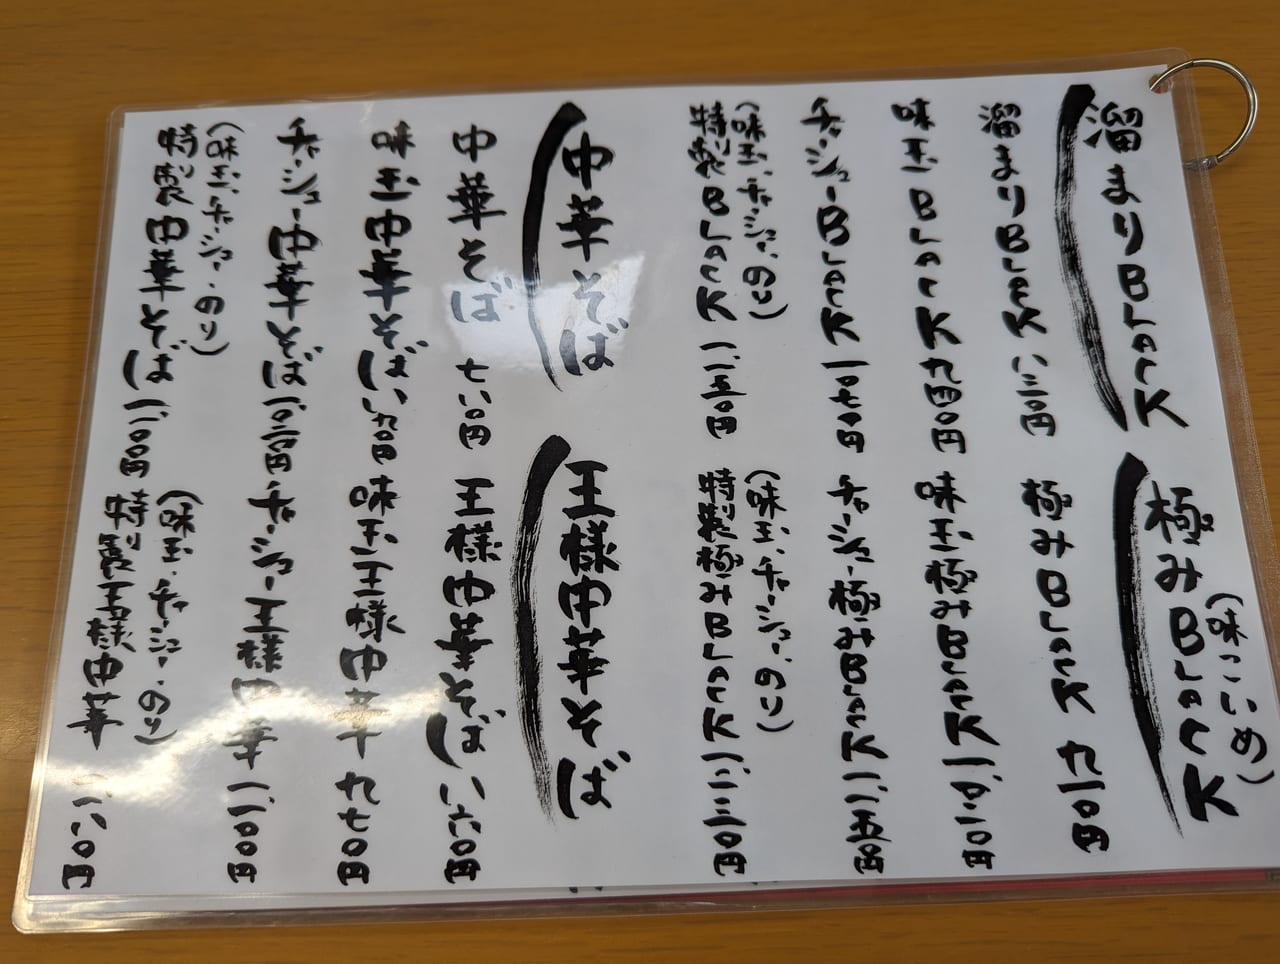 溜まりBLACK
溜まりBLACK 八三〇円
味玉BLACK 九四〇円
チャーシューBLACK 一、〇七〇円
(味玉、チャーシュー、のり)
特製BLACK 一、一五〇円
極みBLACK
(味こいめ)
極みBLACK 九一〇円
味玉極みBLACK 一、〇二〇円
チャーシュー極みBLACK 一、一五〇円
(味玉、チャーシュー、のり)
特製極みBLACK 一、二三〇円
中華そば
中華そば 七八〇円
味玉中華そば 八九〇円
チャーシュー中華そば 一、〇二〇円
(味玉、チャーシュー、のり)
特製中華そば 一、一〇〇円
王様中華そば
王様中華そば 八六〇円
味玉王様中華 九七〇円
チャーシュー王様中華 一、一〇〇円
(味玉、チャーシュー、のり)
特製王様中華